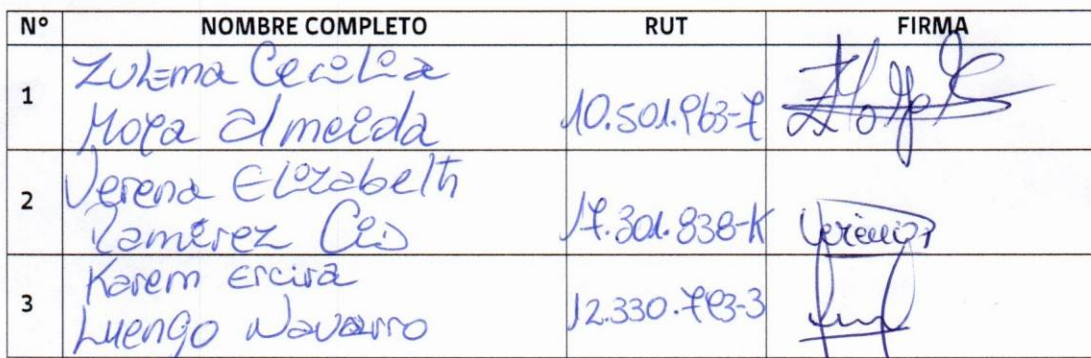 N° NOMBRE COMPLETO RUT FIRMA
1 Zulema Cecilia
Moya Almeida 10.501.963-7
2 Verena Elizabeth
Ramirez Cid 17.301.838-K
3 Karem Ercira
Luengo Navarro 12.330.793-3